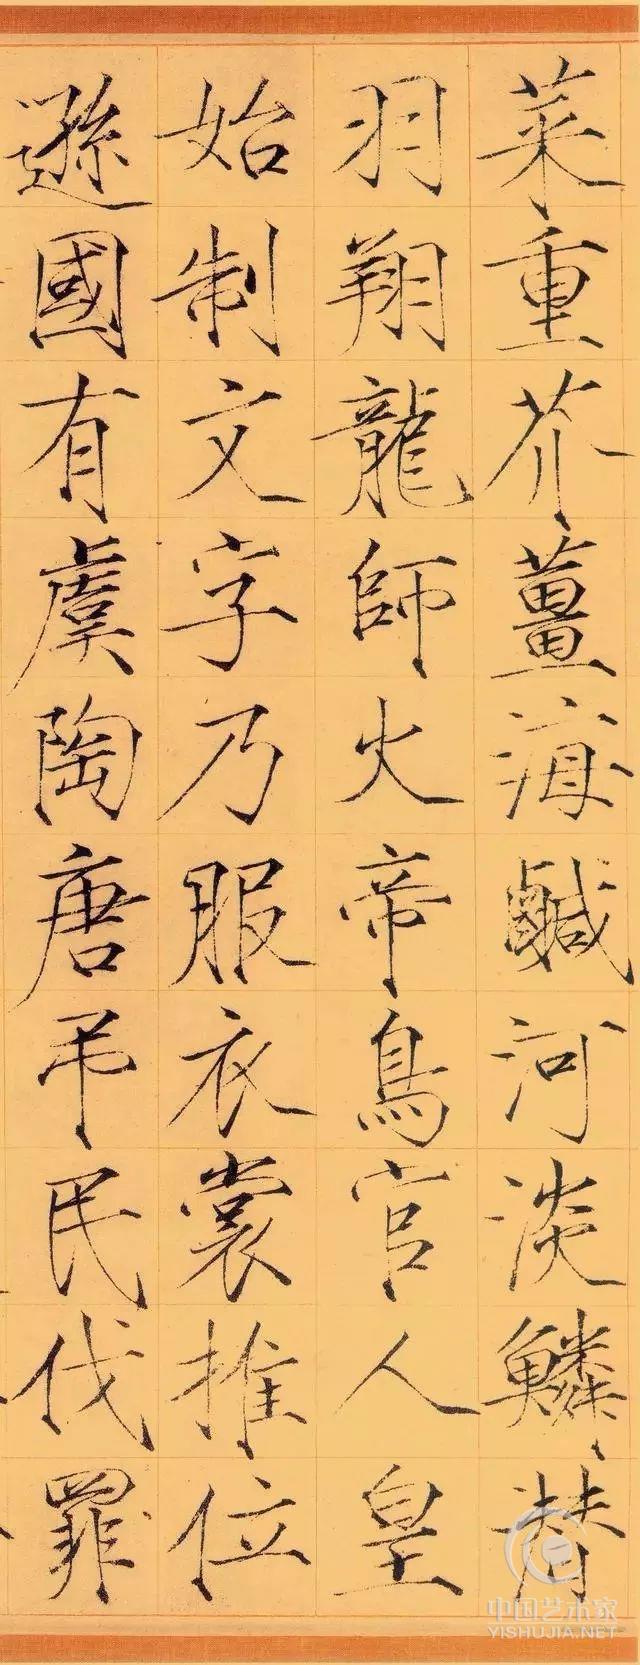 菜重芥薑海鹹河淡鱗潛
羽翔龍師火帝鳥官人皇
始制文字乃服衣裳推位
遜國有虞陶唐弔民伐罪
中国艺术家
YISHUJIA.NET